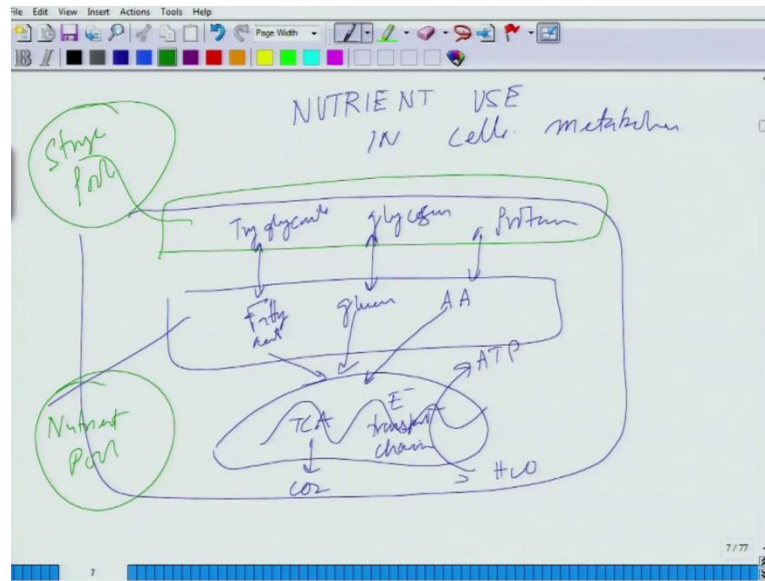 File Edit View Insert Actions Tools Help
Page Width
B I
NUTRIENT USE
IN Cells Metabolism
Storage
Pool
Triglyceride glycogen Protein
Fatty glucose AA
acid
ATP
TCA E-
transport
chain
CO2
H2O
Nutrient
Pool
7/77
7